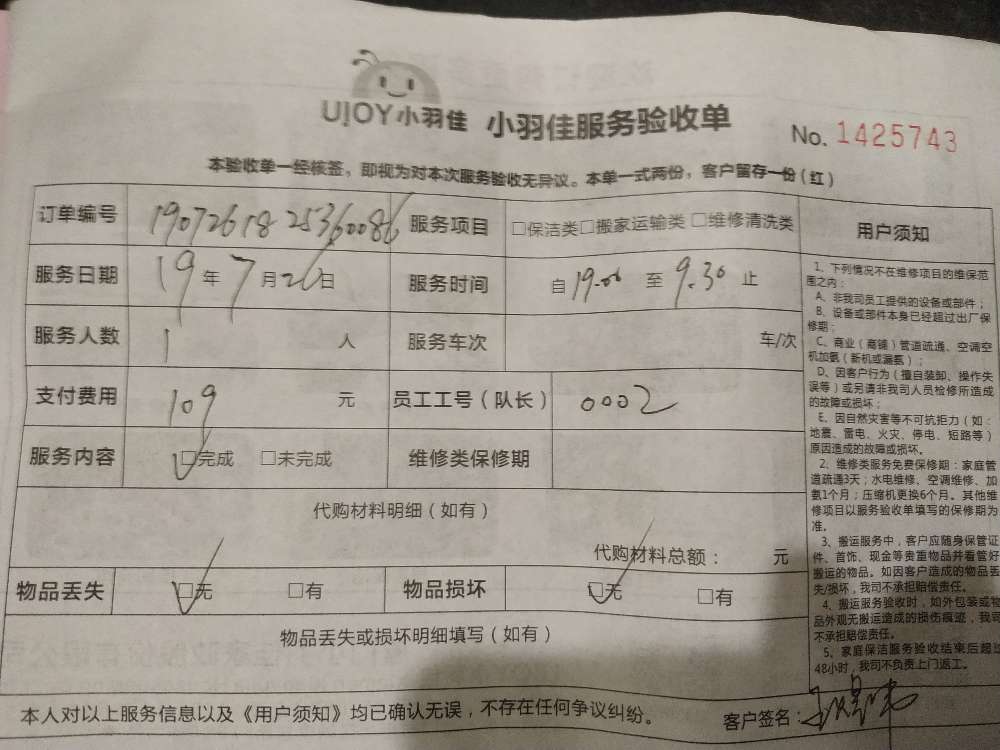 UJOY小羽佳 小羽佳服务验收单
No. 1425743
本验收单一经核签，即视为对本次服务验收无异议。本单一式两份，客户留存一份（红）
订单编号 1907261825360086 服务项目 □保洁类□搬家运输类 □维修清洗类
服务日期 19年7月26日 服务时间 自19.00 至 9.30 止
服务人数 1 人 服务车次 车/次
支付费用 109 元 员工工号（队长） 0002
服务内容 □完成 □未完成 维修类保修期
代购材料明细（如有）
代购材料总额： 元
物品丢失 □无 □有 物品损坏 □无 □有
物品丢失或损坏明细填写（如有）
用户须知
1、下列情况不在维修项目的维保范
围之内：
A、非我司员工提供的设备或部件；
B、设备或部件本身已经超过出厂保
修期；
C、商业（商铺）管道疏通、空调空
机加氨（新机或漏氨）；
D、因客户行为（擅自装卸、操作失
误等）或另请非我司人员检修所造成
的故障或损坏；
E、因自然灾害等不可抗拒力（如：
地震、雷电、火灾、停电、短路等）
原因造成的故障或损坏。
2、维修类服务免费保修期：家庭管
道疏通3天；水电维修、空调维修、加
氨1个月；压缩机更换6个月。其他维
修项目以服务验收单填写的保修期为
准。
3、搬运服务中，客户应随身保管证
件、首饰、现金等贵重物品并看管好
搬运的物品。如因客户造成的物品丢
失/损坏，我司不承担赔偿责任。
4、搬运服务验收时，如外包装或物
品外观无搬运造成的损伤痕迹，我司
不承担赔偿责任。
5、家庭保洁服务验收结束后超过
48小时，我司不负责上门返工。
本人对以上服务信息以及《用户须知》均已确认无误，不存在任何争议纠纷。 客户签名：